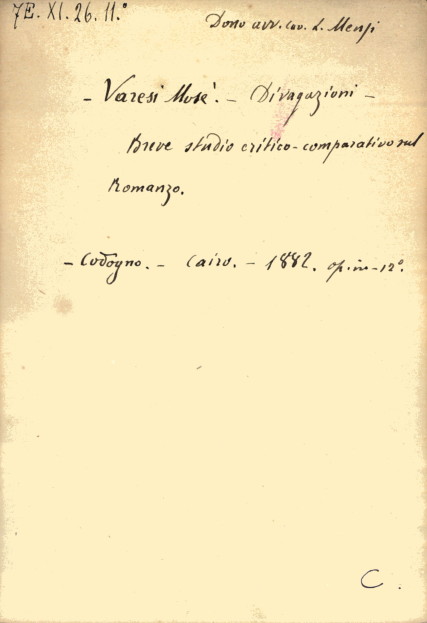 7E. XI. 26. 11.°
Dono avv. cav. L. Mensi
- Varesi Mosè. - Divagazioni -
Breve studio critico-comparativo sul
Romanzo.
- Codogno. - Cairo. - 1882. op. in-12°.
C.